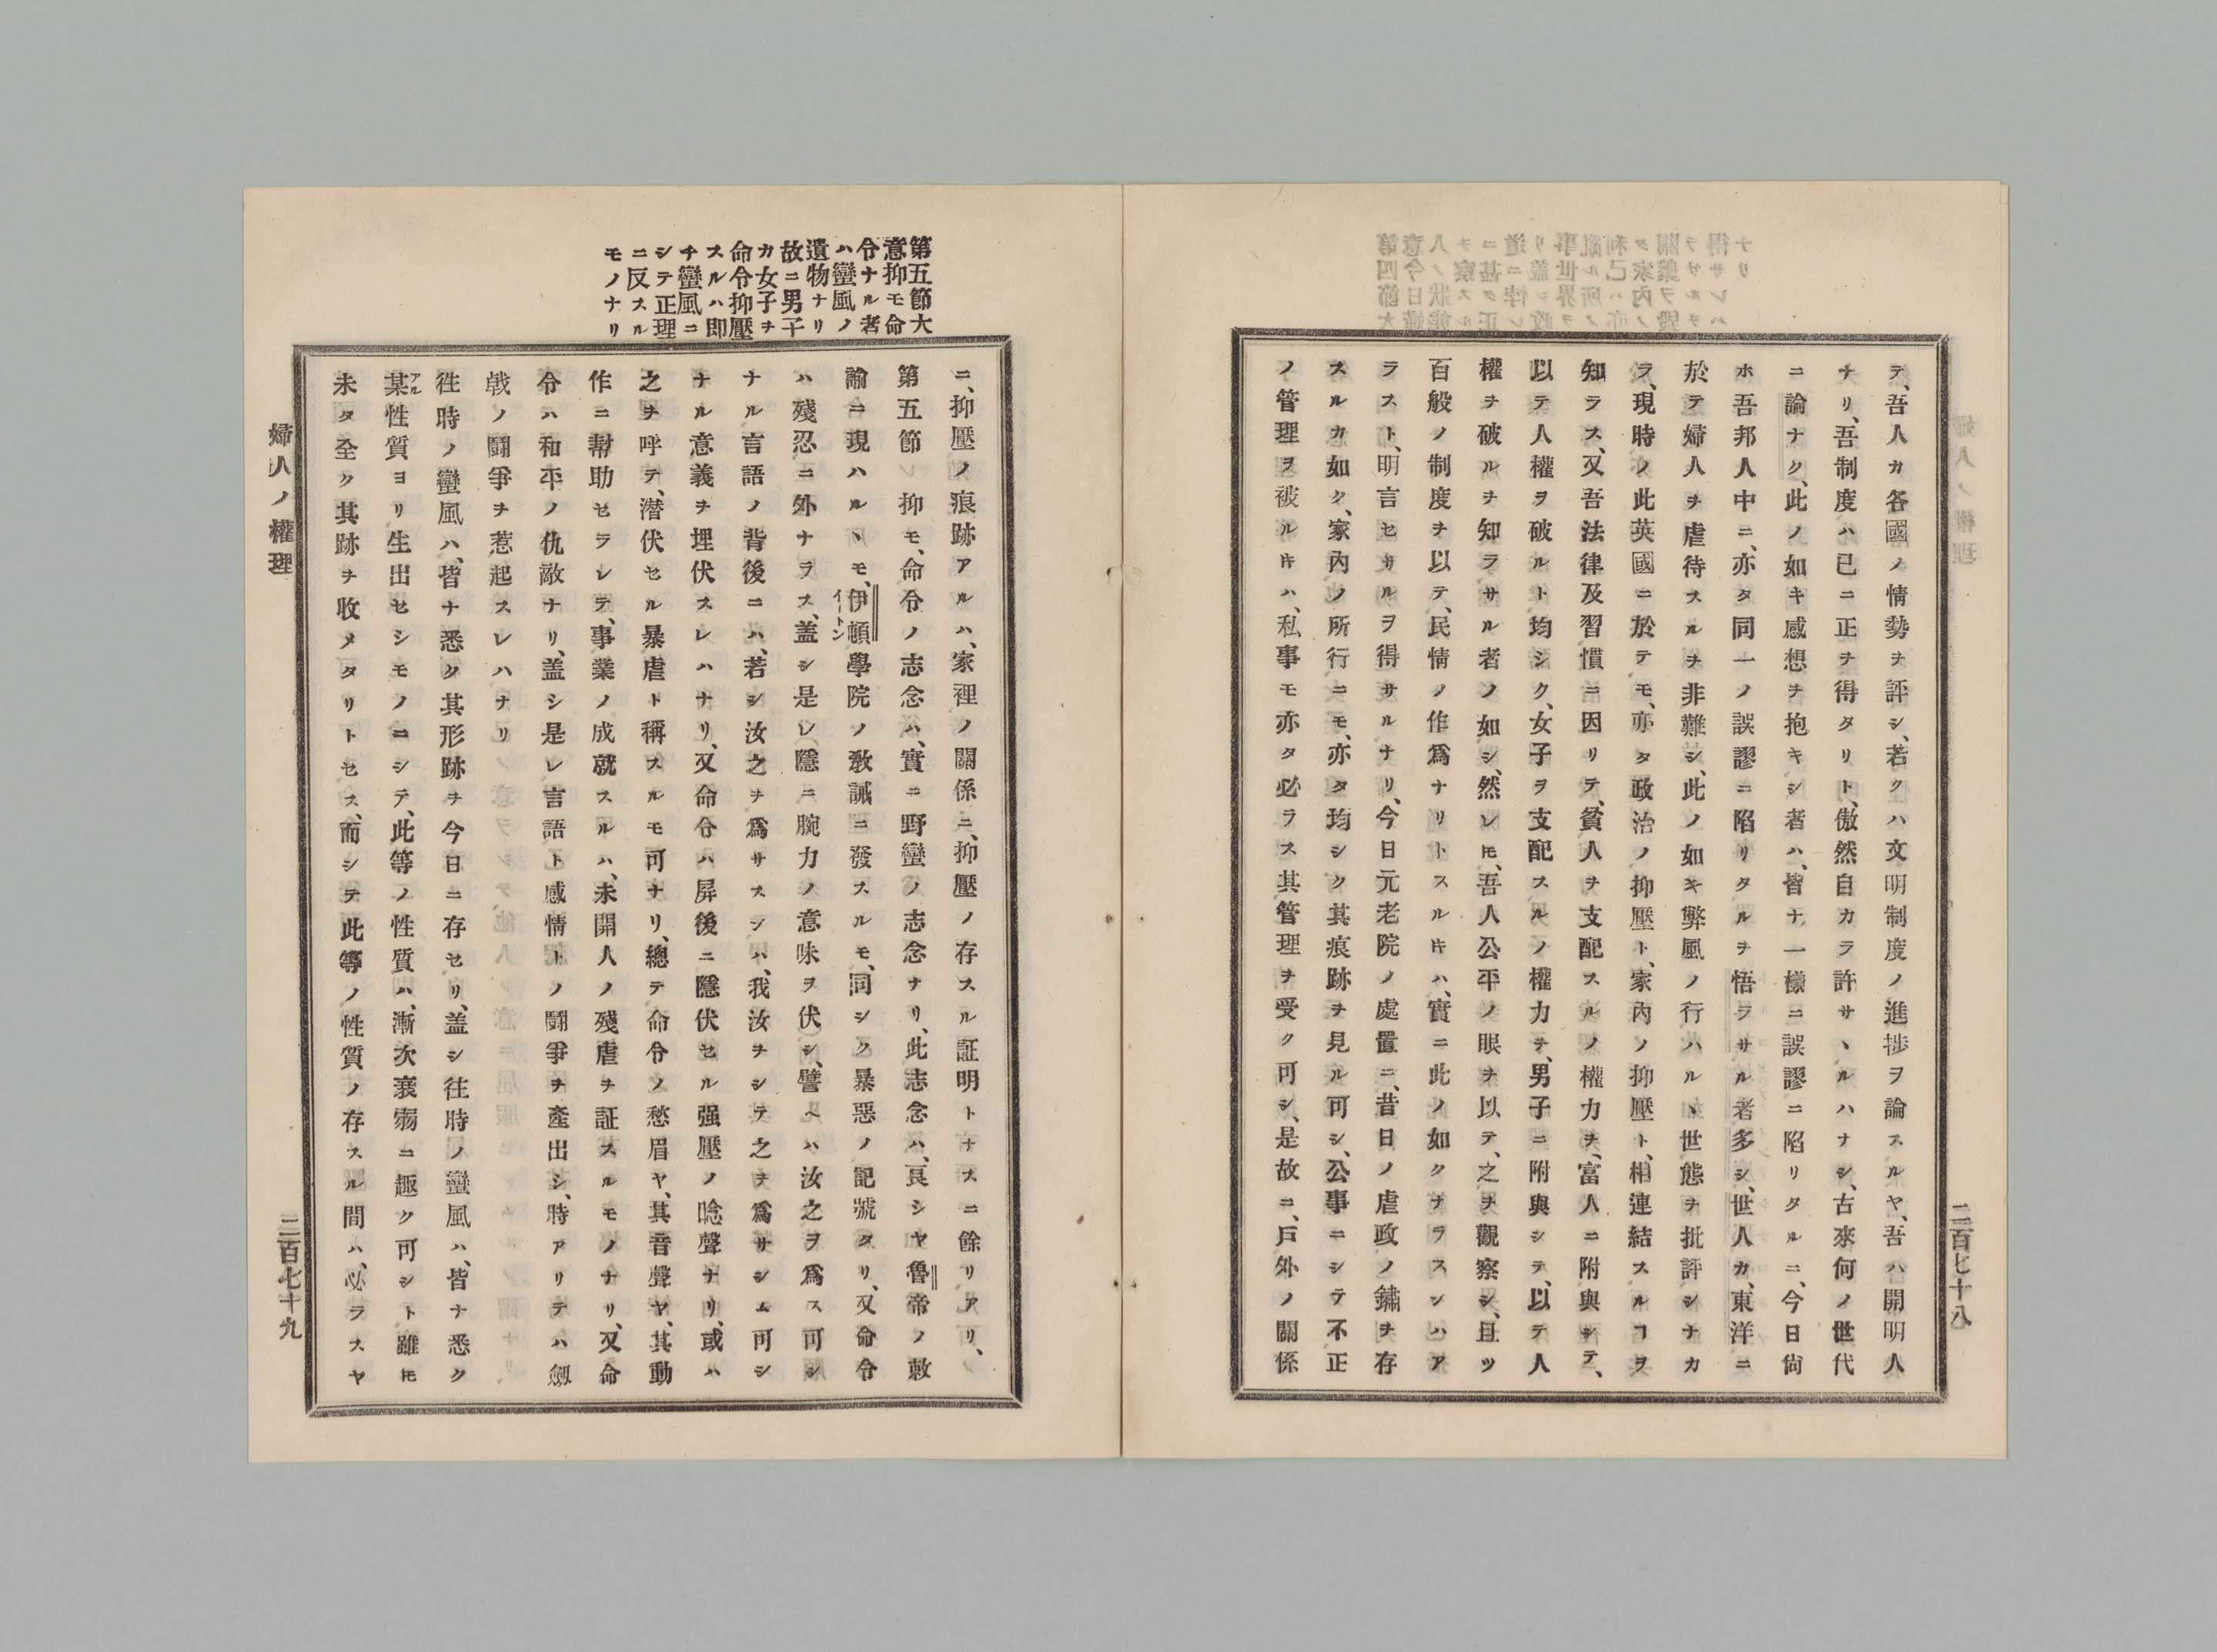 二百七十八
テ、吾人カ各國ノ情勢ヲ評シ、若クハ文明制度ノ進捗ヲ論スルヤ、吾ハ開明人
ナリ、吾制度ハ已ニ正ヲ得タリト、傲然自カラ許サヽルハナシ、古來何ノ世代
ニ論ナク、此ノ如キ感想ヲ抱キシ者ハ、皆ナ一樣ニ誤謬ニ陷リタルニ、今日尙
ホ吾邦人中ニ、亦タ同一ノ誤謬ニ陷リタルヲ悟ラサル者多シ、世人カ、東洋ニ
於テ婦人ヲ虐待スルヲ非難シ、此ノ如キ弊風ノ行ハルヽ世態ヲ批評シナカ
ラ、現時ノ此英國ニ於テモ、亦タ政治ノ抑壓ト、家內ノ抑壓ト、相連結スルヿヲ
知ラス、又吾法律及習慣ニ因リテ、貧人ヲ支配スルノ權力ヲ、富人ニ附與シテ、
以テ人權ヲ破ルト均シク、女子ヲ支配スルノ權力ヲ、男子ニ附與シテ、以テ人
權ヲ破ルヲ知ラサル者ノ如シ、然レㇳモ、吾人公平ノ眼ヲ以テ、之ヲ觀察シ、且ツ
百般ノ制度ヲ以テ、民情ノ作爲ナリトスルキハ、實ニ此ノ如クナラスンハア
ラスト、明言セサルヲ得サルナリ、今日元老院ノ處置ニ、昔日ノ虐政ノ鏽ヲ存
スルカ如ク、家內ノ所行ニモ、亦タ均シク其痕跡ヲ見ル可シ、公事ニシテ不正
ノ管理ヲ被ルキハ、私事モ亦タ必ラス其管理ヲ受ク可シ、是故ニ、戶外ノ關係
第五節大
意抑モ命
令ナル者
ハ蠻風ノ
遺物ナリ
故ニ男子
カ女子ヲ
命令抑壓
スルハ卽
チ蠻風ニ
シテ正理
ニ反スル
モノナリ
ニ、抑壓ノ痕跡アルハ、家裡ノ關係ニ、抑壓ノ存スル証明トナスニ餘リアリ、
第五節 抑モ、命令ノ志念ハ、實ニ野蠻ノ志念ナリ、此志念ハ、良シヤ魯帝ノ敕
諭ニ現ハルヽモ、伊頓學院ノ敎誡ニ發スルモ、同シク暴惡ノ記號タリ、又命令
イートン
ハ殘忍ニ外ナラス、盖シ是レ(隱ニ腕力ノ意味ヲ伏)シ、譬ヘハ汝之ヲ爲ス可シ
ナル言語ノ背後ニハ、若シ汝之ヲ爲サスンハ、我汝ヲシテ之ヲ爲サシム可シ
ナル意義ヲ埋伏スレハナリ、又命令ハ屛後ニ隱伏セル强壓ノ唸聲ナリ、或ハ
之ヲ呼テ、潜伏セル暴虐ト稱スルモ可ナリ、總テ命令ノ愁眉ヤ、其音聲ヤ、其動
作ニ幇助セラレテ、事業ノ成就スルハ、未開人ノ殘虐ヲ証スルモノナリ、又命
令ハ和平ノ仇敵ナリ、盖シ是レ言語ト感情トノ鬪爭ヲ產出シ、時アリテハ劔
戟ノ鬪爭ヲ惹起スレハナリ
徃時ノ蠻風ハ、皆ナ悉ク其形跡ヲ今日ニ存セリ、盖シ往時ノ蠻風ハ、皆ナ悉ク
某性質ヨリ生出セシモノニシテ、此等ノ性質ハ、漸次衰弱ニ趣ク可シト雖ㇳモ
アル
未タ全ク其跡ヲ收メタリトセス、而シテ此等ノ性質ノ存スル間ハ、必ラスヤ
婦人ノ權理
二百七十九